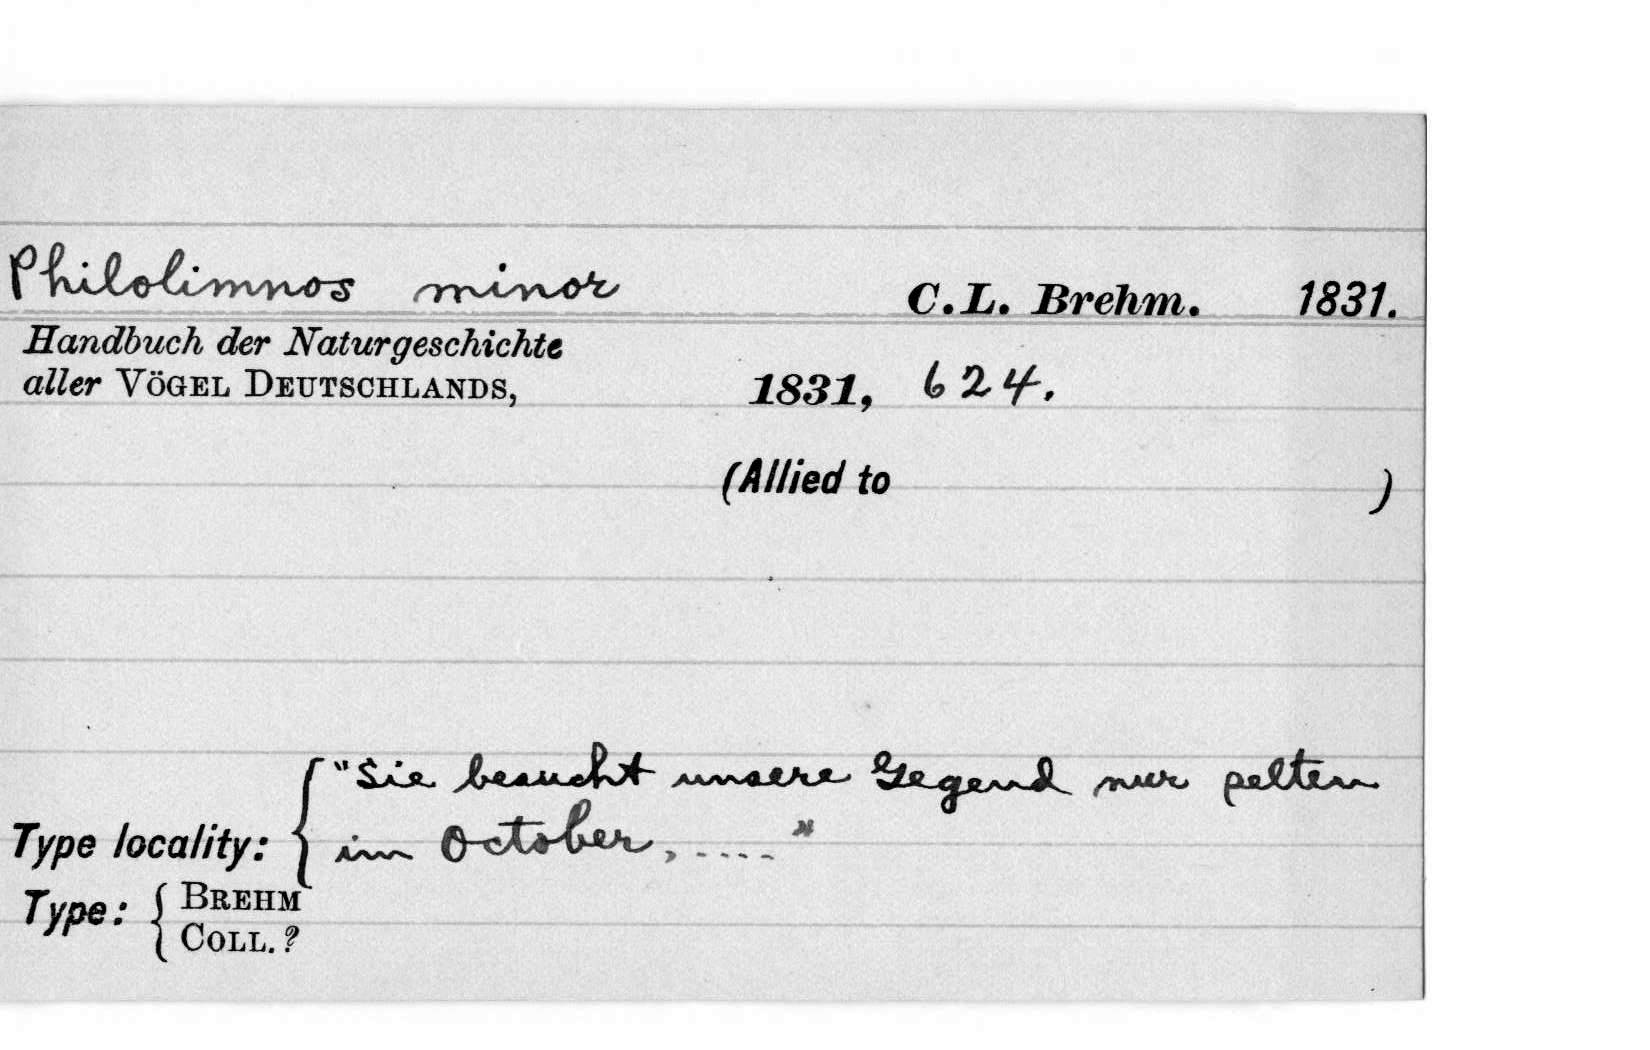 Philolimnos minor C.L. Brehm. 1831.
Handbuch der Naturgeschichte
aller VÖGEL DEUTSCHLANDS, 1831, 624.
(Allied to )
"Sie besucht unsere Gegend nur selten
Type locality: { im October, ....."
Type: { BREHM
COLL. ?